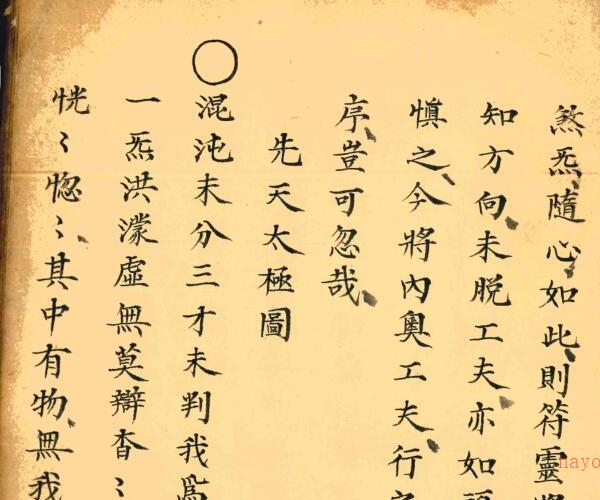 煞炁隨心如此則符靈將
知方向未脫工夫亦如
慎之今將內奧工夫行
序豈可忽哉
先天太極圖
混沌未分三才未判我爲
一炁洪濛虛無莫辯杳〻
恍〻惚〻其中有物無我
hayo